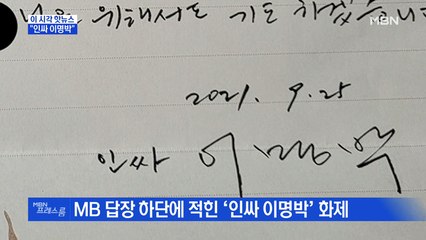 이 시각 핫뉴스
"인싸 이명박"
MBN
위해서도 기도 하겠습니다
2021. 9. 25
인싸 이명박
MBN
프레스룸
MB 답장 하단에 적힌 '인싸 이명박' 화제